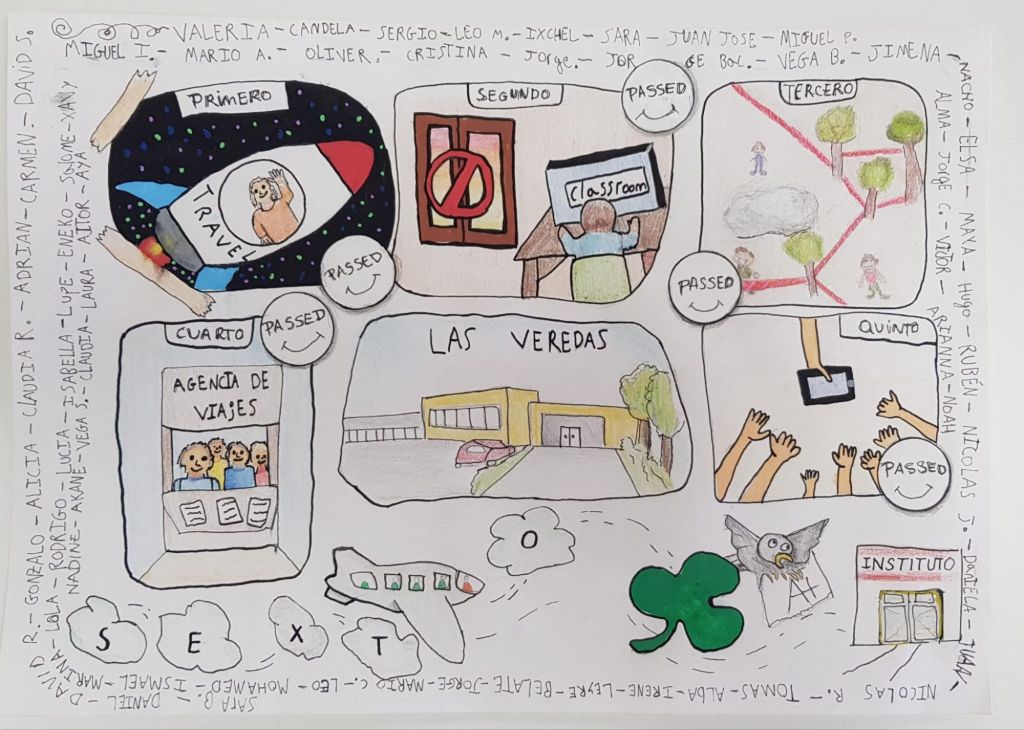 VALERIA - CANDELA - SERGIO - LEO M. - IXCHEL - SARA - JUAN JOSE - MIGUEL P.
MIGUEL I. - MARIO A. - OLIVER. - CRISTINA - JORGE. - JOR GE BOL. - VEGA B. - JIMENA
NACHO - ELSA - MAYA - HUGO - RUBÉN - NICOLAS J. - DANIELA - JUAN -
ALMA - JORGE C. - VICTOR - ARIANNA - NOAH
PRIMERO
TRAVEL
PASSED
SEGUNDO
classroom
PASSED
TERCERO
PASSED
CUARTO
PASSED
AGENCIA DE
VIAJES
LAS VEREDAS
QUINTO
PASSED
S E X T O
A+
INSTITUTO
NICOLAS R. - TOMAS - ALBA - IRENE - LEYRE - BELATE - JORGE - MARIO C. - LEO - MOHAMED - ISMAEL - MAR
SARA B. - DANIEL - D
DAVID R. - GONZALO - ALICIA - CLAUDIA R. - ADRIAN - CARMEN - DAVID S.
MARINA - LOLA - RODRIGO - LUCIA - ISABELLA - LUPE - ENEKO - SALOME - XAVI Y
NADINE - AKANE - VEGA S. - CLAUDIA - LAURA - AITOR - AYA